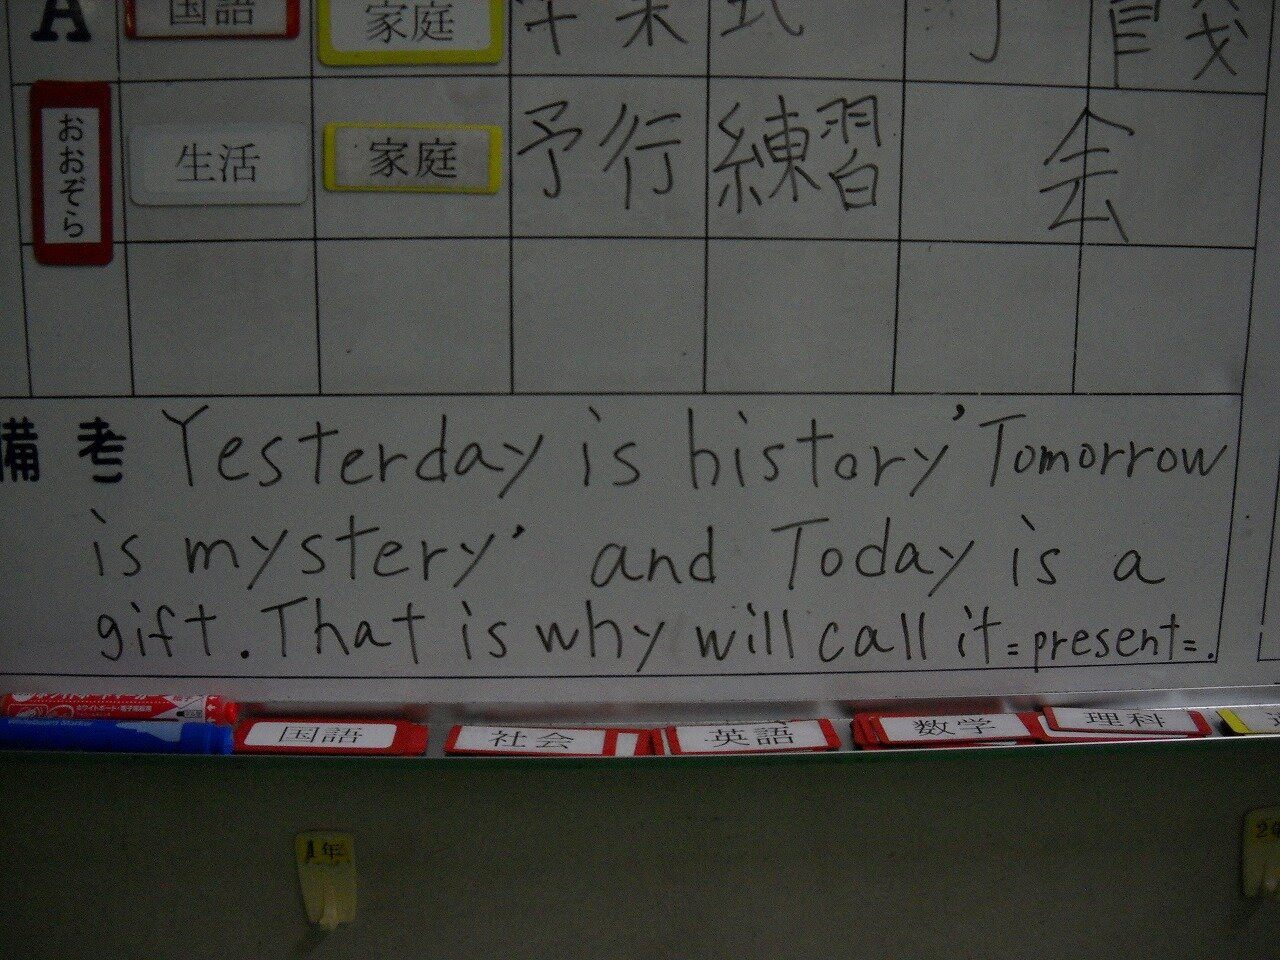 A 国語 家庭 卒業式
おおぞら 生活 家庭 予行練習 会
備考 Yesterday is history’ Tomorrow
is mystery’ and Today is a
gift. That is why will call it=present=.
国語 社会 英語 数学 理科
1年